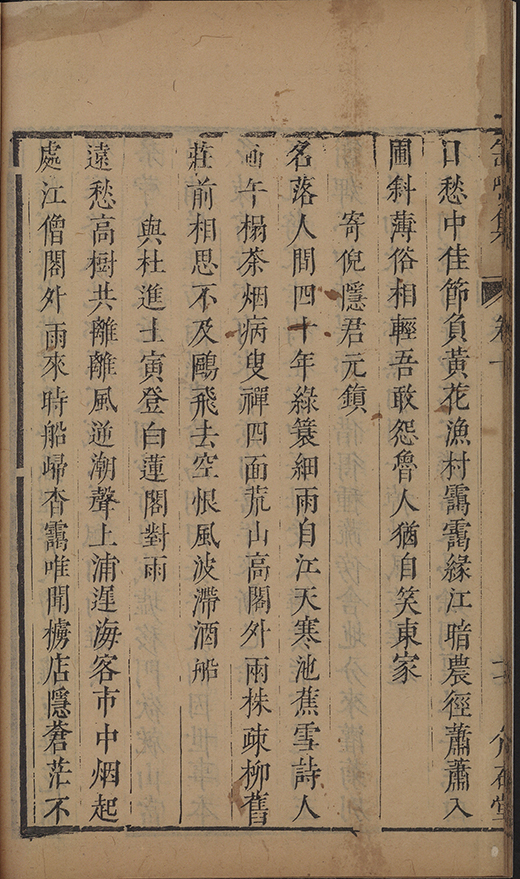 口愁中佳節負黃花漁村靄靄緣江暗農徑蕭蕭入
圃斜薄俗相輕吾敢怨魯人猶自笑東家
寄倪隱君元鎮
名落人間四十年綠簑細雨自江天寒池蕉雪詩人
画午榻茶烟病叟禪四面荒山高閣外雨株疎柳舊
莊前相思不及鷗飛去空恨風波滯酒船
與杜進士寅登白蓮閣對雨
遠愁高樹共離離風逆潮聲上浦遲海客市中烟起
處江僧閣外雨來時船歸杳靄唯聞櫓店隱蒼茫不